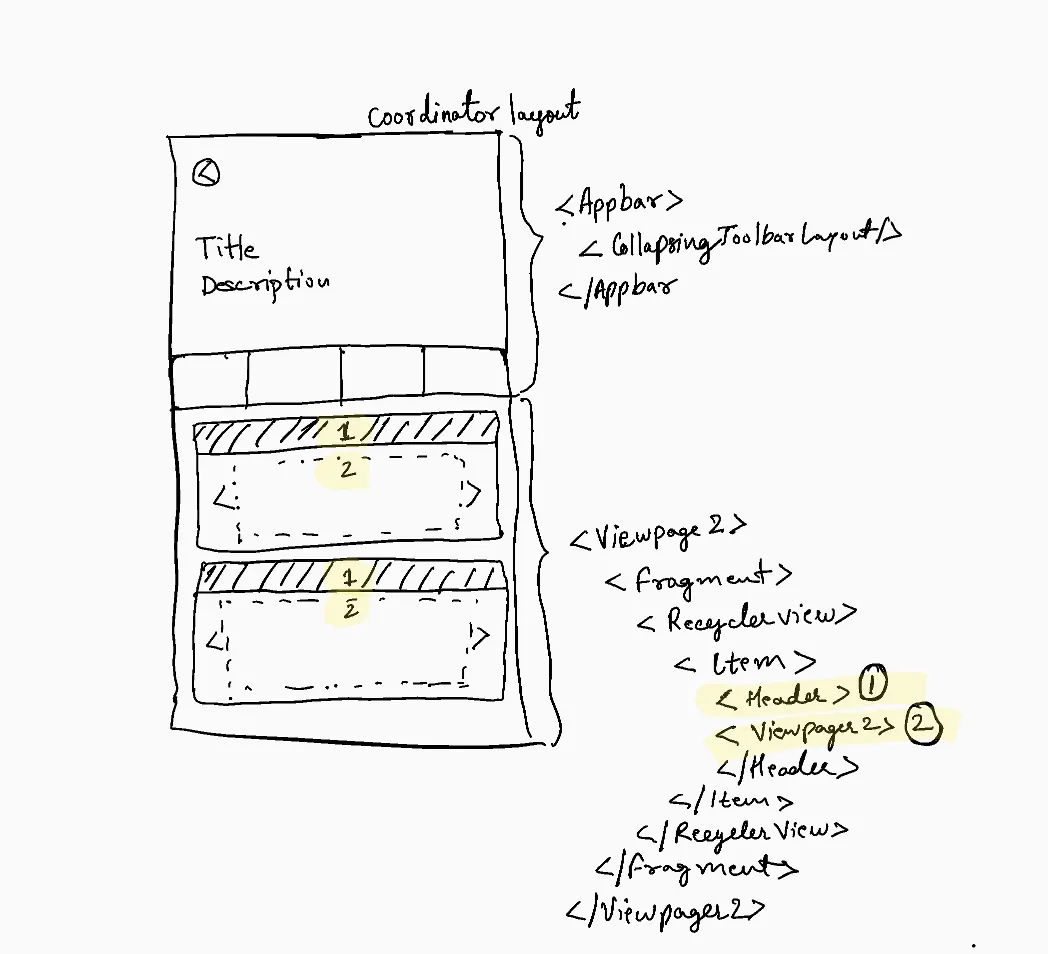 Coordinator layout
<
Title
Description
<Appbar>
<CollapsingToolbarLayout/>
</Appbar
1
2
< >
1
2
< >
<Viewpage2>
<Fragment>
<Recyclerview>
<Item>
<Header> 1
<Viewpager2> 2
</Header>
</Item>
</RecyclerView>
</Fragment>
</Viewpager2>